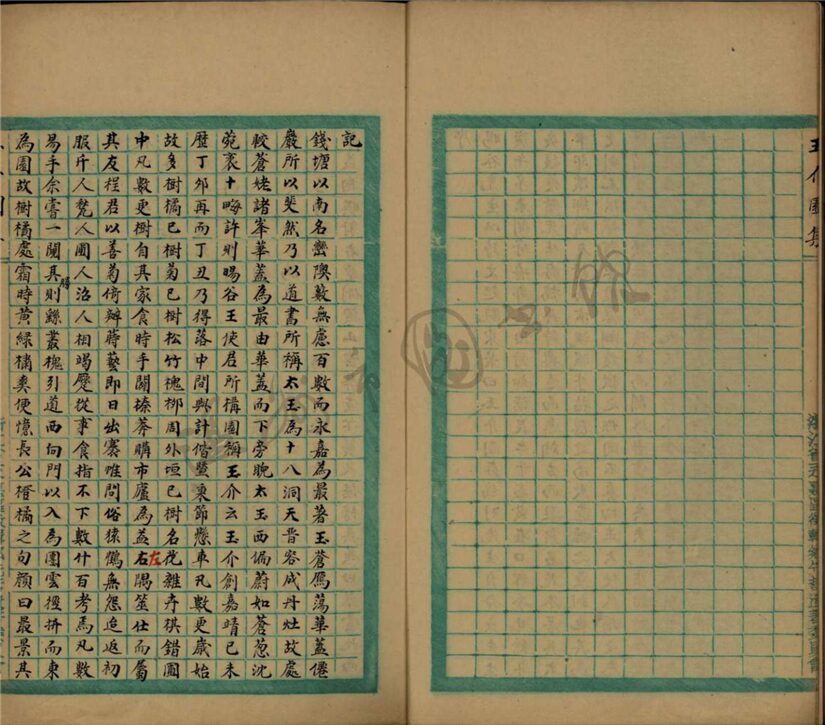 記
錢塘以南名巒隩藪無慮百數而永嘉為最著玉蒼鴈蕩華蓋僊
巖所以斐然乃以道書所稱太玉為十八洞天晋容成丹灶故處
較蒼姥諸峯華蓋為最由華蓋而下旁睨太玉西偏蔚如蒼葱沈
菀袤十畮許則暘谷王使君所構園稱玉介云玉介創嘉靖己未
歷丁夘再而丁丑乃得落中間與計偕暨秉節懸車凡數更歲始
故多樹橘已樹菊已樹松竹槐栁周外垣已樹名花雜卉棋錯圃
中凡數更樹自其家食時手闢榛莽購市廬為益右左隅筮仕而屬
其友程君以善菊倚辦蒔藝即日出寨唯問俗猿鶴無怨迨返初
服斤人甃人圃人治人相竭蹷從事食指不下數什百考焉凡數
易手余嘗一闖其勝則繇叢槐引道西向門以入為園雲徑拼而東
為園故樹橘處霜時黄綠橘奭便憶長公揟橘之句顏曰最景其
玉介園集